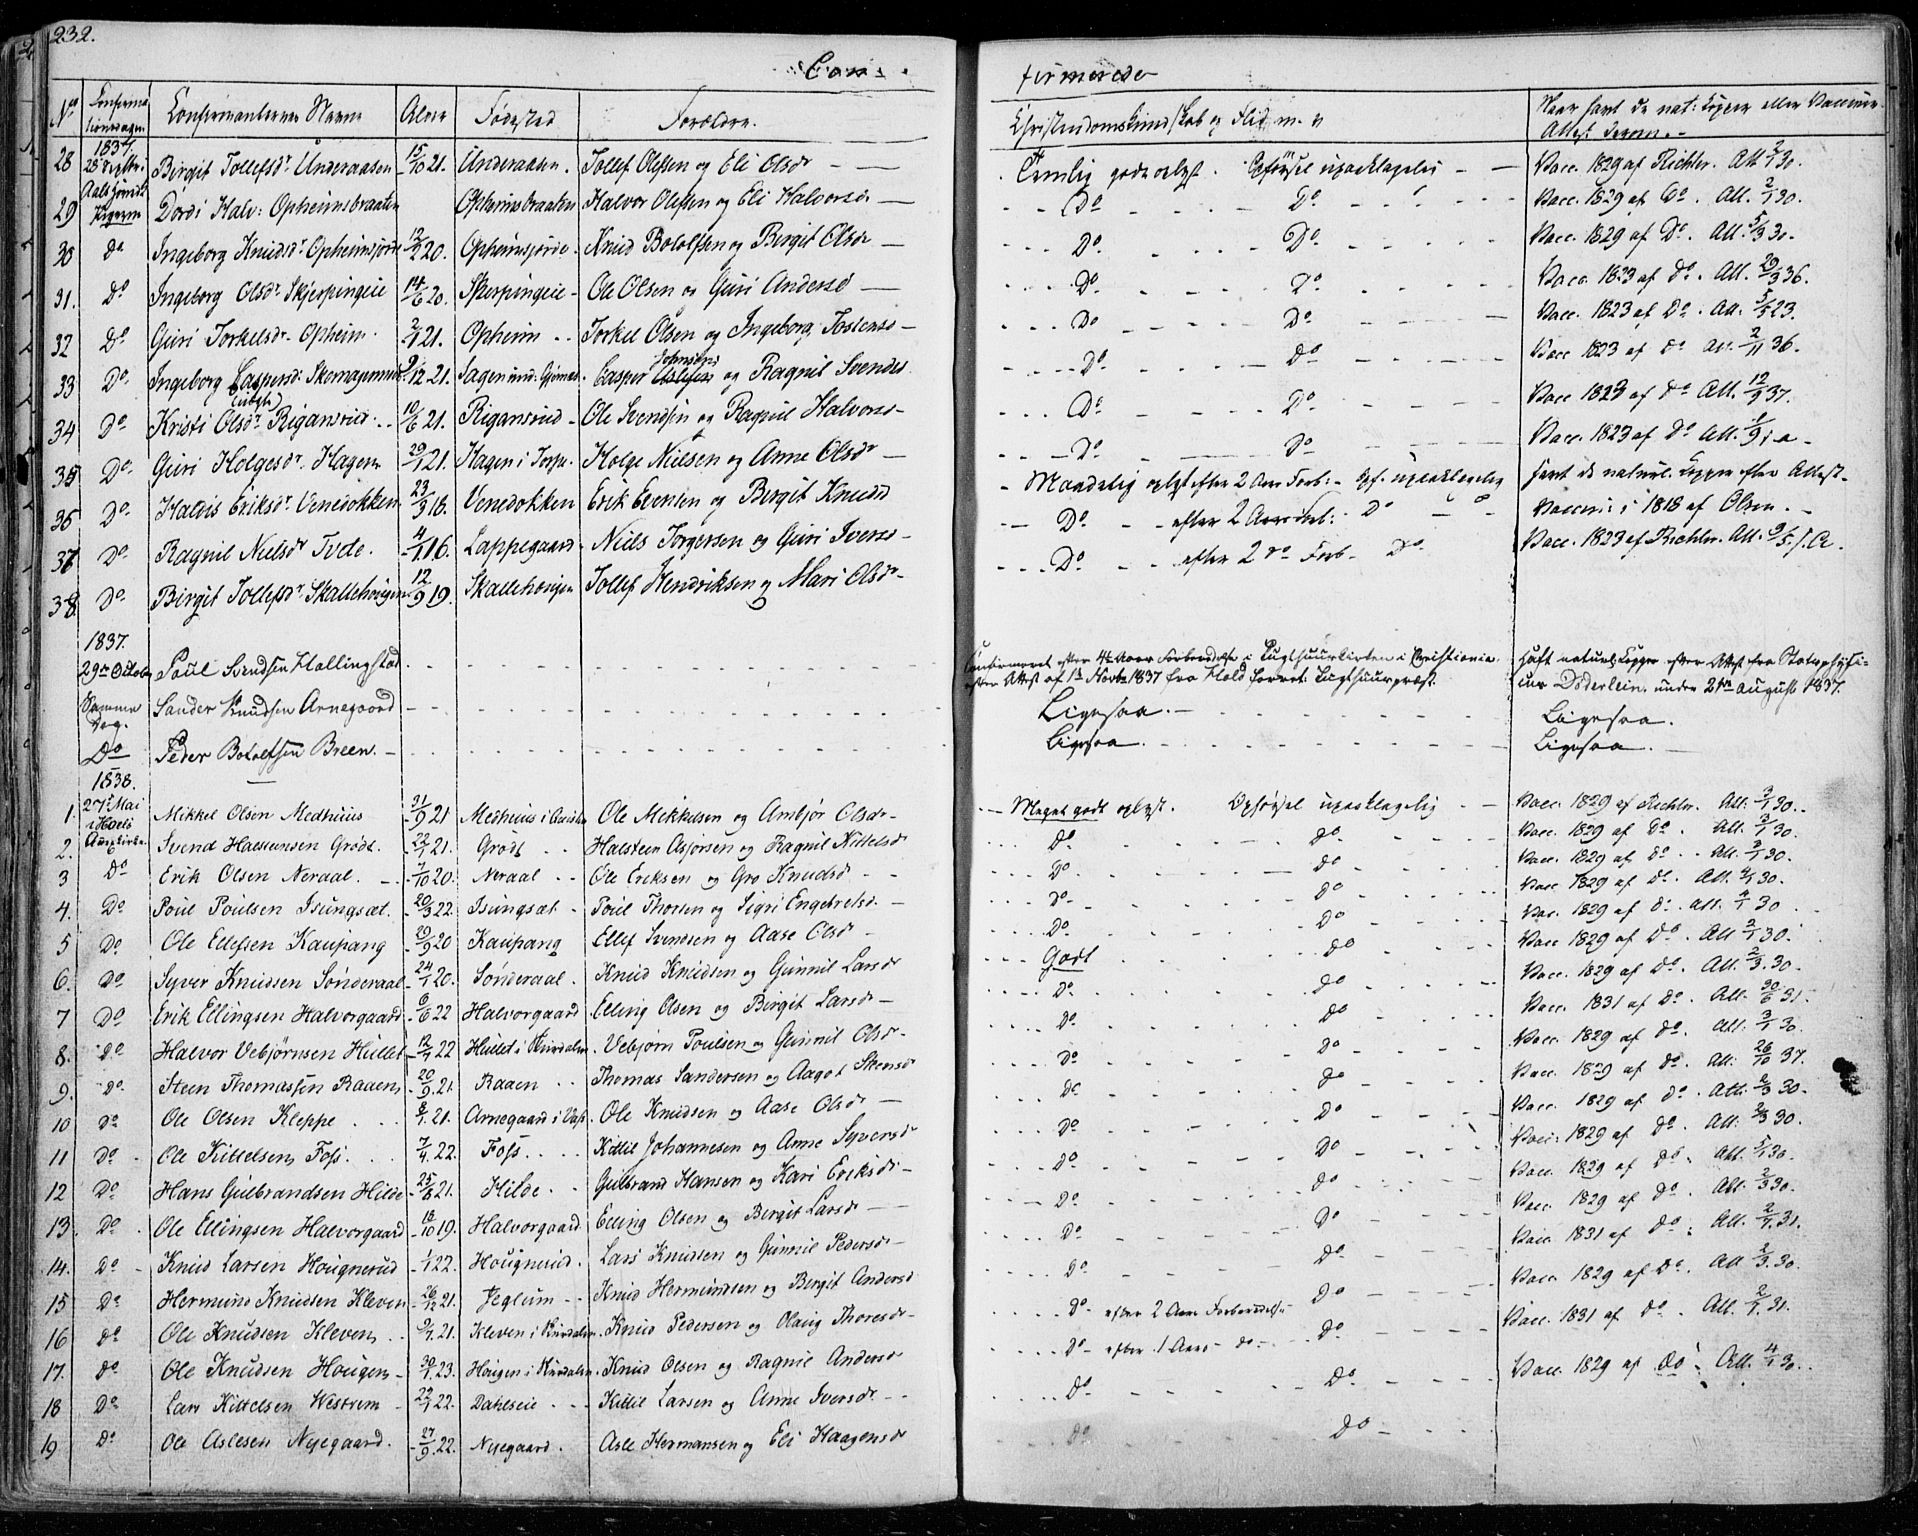 232.
Con-
firmerede
No Confirmationsdagen Confirmanternes Navne Alder Fødested Forældre. Christendomskundskab og Flid m. v Naar havt de nat: Kopper eller Vaccine Attest derom.
1837.
28 Birgit Tollefsdr Underaasen 15/10 21. Underaasen. Tollef Olsen og Eli Olsdr Temlig godt oplyst. Opførsel upaaklagelig Vacc. 1829 af Richter. Att. 2/1 30.
29 Dordi Halv: Opheimsbraaten Opheimsbraaten Halvor Olsen og Eli Halvorsdr Do Do Vacc. 1829 af Do. Att. 2/1 30.
30 Do Ingeborg Knudsdr Opheimsjorde 12/2 20. Opheimsjorde. Knud Botolfsen og Birgit Olsdr Do Do Vacc. 1829 af Do. Att. 5/3 30.
31. Do Ingeborg Olsdr Skjerpingeie 14/6 20. Skerpingeie Ole Olsen og Guri Andersd Do Do Vacc. 1823 af do. Att. 29/3 36.
32 Do Guri Torkelsdr Opheim. 2/1 21. Opheim Torkel Olsen og Ingeborg Jostensd Do Do Vacc. 1823 af Do. Att. 5/5 23.
33 Do Ingeborg Caspersd: 9/12 21. Casper Johnsen og Ragnil Svendsd Do Do Vacc 1823 af do Att. 2/11 36.
34 Do Kristi Olsdr Rigansrud 10/6 21. Rigansrud Ole Svendsen og Ragnil Halvorsd Do Do Vacc. 1829 af do Att. 12/9 37.
35 Do Guri Holgesdr Hagen 29/1 21. Hagen i Torpe. Holge Nielsen og Anne Olsdr Do Do Vacc. 1823 af Do Att. 1/9 i.a
36 Do Haldis Eriksdr Venedokken 23/3 18. Venedokken Erik Evensen og Birgit Knudsd Maadelig oplyst efter 2 Aars Forb: Opf. upaaklagelig Havt de naturl. Kopper efter Attest
37 Do Ragnil Nielsdr Tvede. 4/1 16. Lappegaard Niels Torgersen og Guri Iversd Do efter 2 Aars del: Do Vaccin: i 1818 af Olsen.
38. Do Birgit Tollefsdr Skallehougen 12/9 19. Skallehougen Tollef Hendriksen og Mari Olsdr Do efter 2 do Forb. Do Vacc. 1823 af Richter. Att. 9/5
1837.
29de Octob Poul Svendsen Hallingstad Confirmeret efter 4½ Aars Forberedelse i Tugthuuskirken i Christiania efter Attest af 1ste Novbr 1837 fra Hold forrest. Tugthuuspræst. Havt naturl. Kopper efter Attest fra Statsphysicus Døderlein under 21de August 1837.
Samme Dag. Sander Knudsen Arnegaard Ligesaa. Ligesaa.
Do Peder Botolfsen Breen. Ligesaa Ligesaa.
1838.
27de Mai
1. Mikkel Olsen Medhuus 31/9 21 Medhuus i Ole Mikkelsen og Ambjør Olsdr Meget godt oplyst. Opførsel upaaklagelig Vacc. 1829 af Richter. Att: 2/1 30.
2. Svend Halsteensen Grødt. 22/1 21. Grødt Halsteen Asjorsen og Ragnil Kittelsd Do do Vacc. 1829 af Do. Att. 2/1 30.
3 Do Erik Olsen Neraal. 7/10 20. Neraal Ole Eriksen og Gro Knudsd Do do Vacc. 1829 af do. Att. 2/1 30.
4. Do Poul Poulsen Isungsæt. 20/3 22. Isungsæt Poul Thorsen og Sigri Engebretsd Do do Vacc. 1829 af do. Att. 2/1 30.
5 Do Ole Ellefsen Kaupang 29/9 20 Kaupang Ellef Svendsen og Aase Olsd Do Do Vacc. 1829 af d. Att. 4/1 30
6. Do Syver Knudsen Sønderaal 24/1 20. Sønderaal. Knud Knudsen og Gunnil Larsd Godt do Vacc 1829 af Do. Att 2/1 30.
7 Do Erik Ellingsen Halvorgaard 6/6 22 Halvorgaard Elling Olsen og Birgit Larsd Do do Vacc. 1829 af Do. Att. 2/3. 30.
8. Do Halvor Vebjørnsen Hullet 12/4 22 Hullet i Skurdalen. Vebjørn Poulsen og Gunnil Olsd Do Do Vacc. 1831 af Do. Att. 30/6 31.
9. Do Steen Thomassen Raaen 20/9 21. Raaen Thomas Sandersen og Aagot Stensd Do Do Vacc. 1829 af do. Att. 3/1 30.
10 Do Ole Olsen Kleppe 8/1. 21. Arnegaard i Ole Knudsen og Aase Olsd Do do Vacc. 1829 af do. Att: 26/10 37.
11 Do Ole Kittelsen Foss. 7/4. 22. Foss. Kittil Johannesen og Anne Syversd Do Do Vacc. 1829 af do. Att. 2/3 30.
12 Do Hans Gulbrandsen Hilde 25/8 21. Hilde. Gulbrand Hansen og Kari Eriksd Do Do Vacc: 1829 af do. Att: 2/3 30.
13. Do Ole Ellingsen Halvorgaard 18/10 19. Halvorgaard. Elling Olsen og Birgit Larsd Do do Vacc. 1829 af Do. Att. 5/1 30.
14. Do Knud Larsen Hougnerud 1/1 22. Hougnerud. Lars Knudsen og Gunnil Pedersd Do Do Vacc. 1829 af Do. Att. 2/3 30.
15 Do Hermund Knudsen Kleven 26/12 21. Jeglum Knud Hermundsen og Birgit Andersd Do Do Vacc. 1831 af do. Att. 2/7. 31.
16 do Ole Knudsen Kleven 9/7. 21. Kleven i Skurdalen. Knud Pedersen og Olaug Thoresd Do efter 2 Aars Forberedelse Do Vacc. 1829 af Do. Att 2/3. 30.
17. do Ole Knudsen Hougen 30/1. 23. Hougen i Skurdalen. Knud Olsen og Ragnil Andersd Do efter 1 Aars do Do Vacc. 1831 af do. Att. 2/7. 31.
18 Do Lars Kittelsen Westrem 22/1 22. Dahleie Kittil Larsen og Anne Iversdr Do Do Vacc. 1829 af do. Att. 4/1 30.
19 Do Ole Aslesen Nyegaard. 27/9. 22. Nyegaard. Asle Hermansen og Eli Haagensd Do Do